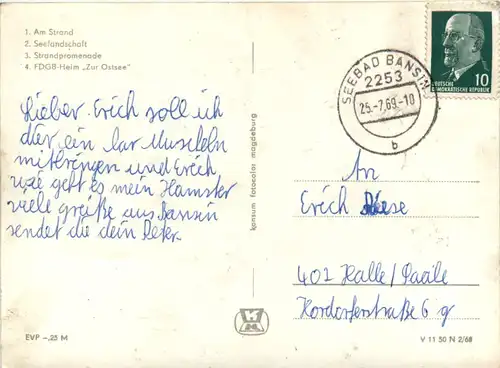 1. Am Strand
2. Seelandschaft
3. Strandpromenade
4. FDGB-Heim „Zur Ostsee"
Lieber Erich soll ich
dier ein par Muscheln
mitbringen und Erich
wie geht es mein Hamster
viele grüße aus Bansin
sendet die dein Peter.
EVP –,25 M
konsum fotocolor magdeburg
SEEBAD BANSIN
2253
25.-7.69-10
b
DEUTSCHE
DEMOKRATISCHE REPUBLIK
10
An
Erich
401 Halle/Saale
Hordorferstraße 6 g
V 11 50 N 2/68